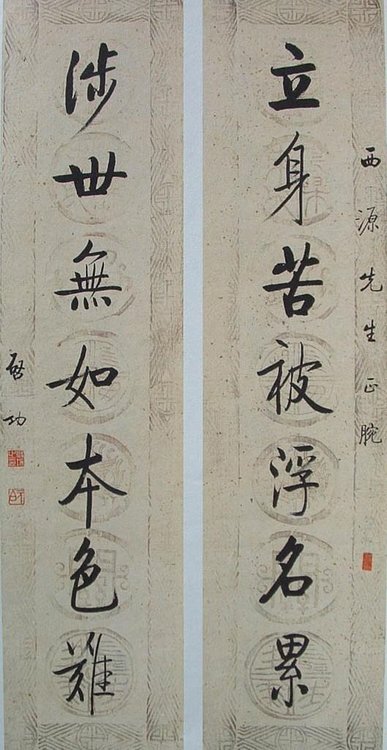 西源先生正腕
立身苦被浮名累
涉世無如本色難
啟功